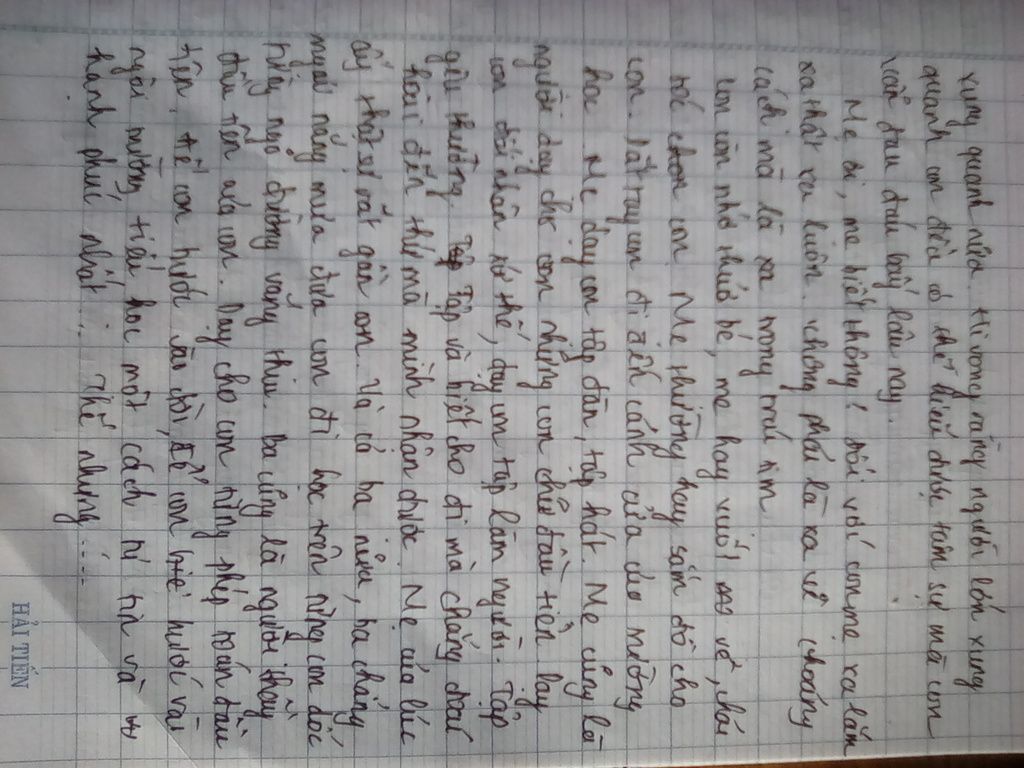 xung quanh nữa. Hi vọng rằng người lớn xung
quanh con đều có thể hiểu được tâm sự mà con
đau đáu bấy lâu nay.
Mẹ ơi, mẹ biết không! Đối với con mẹ xa lắm
xa thật xa luôn. Không phải là xa về khoảng
cách mà là xa trong trái tim
con còn nhớ thuở bé, mẹ hay vuốt ve vỗ, chải
tóc cho con. Mẹ thường hay sắm đồ cho
con. Dắt tay con đi đến cánh cửa của cho mường
học. Mẹ dạy con tập đàn, tập hát. Mẹ cũng là
người dạy cho con những con chữ đầu tiên, lay
con đối nhân xử thế, dạy con tập làm người. Tập
yêu thương. Tập và biết cho đi mà chẳng đoái
hoài đến thứ mà mình nhận được. Mẹ của lúc
ấy thật sự rất gần con. Và có ba nữa, ba chẳng
ngại nắng mưa đưa con đi học trên những con dốc
hay ngọ đường vắng thiu. Ba cũng là người thầy
đầu tiên của con. Dạy cho con từng phép toán đầu
tiên, để con bước vào đời, để con bước vào
ngôi trường tiểu học một cách tự tin và
hạnh phúc nhất... Thế nhưng.....
HẢI TIẾN